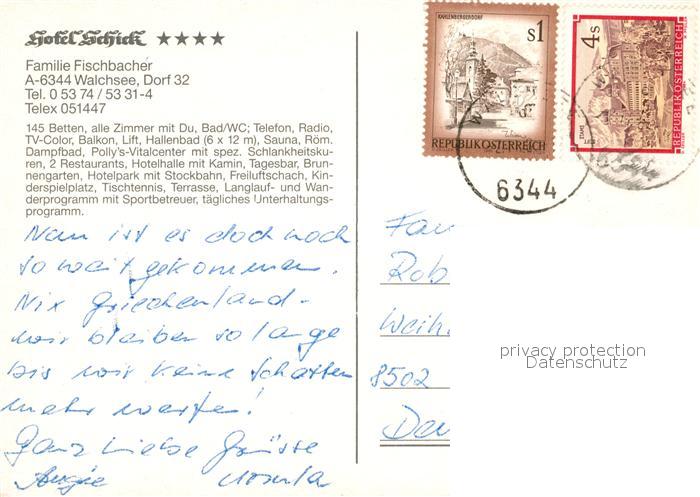 Hotel Schick ★★★★
Familie Fischbacher
A-6344 Walchsee, Dorf 32
Tel. 0 53 74 / 53 31-4
Telex 051447
145 Betten, alle Zimmer mit Du, Bad/WC; Telefon, Radio,
TV-Color, Balkon, Lift, Hallenbad (6 x 12 m), Sauna, Röm.
Dampfbad, Polly's-Vitalcenter mit spez. Schlankheitsku-
ren, 2 Restaurants, Hotelhalle mit Kamin, Tagesbar, Brun-
nengarten, Hotelpark mit Stockbahn, Freiluftschach, Kin-
derspielplatz, Tischtennis, Terrasse, Langlauf- und Wan-
derprogramm mit Sportbetreuer, tägliches Unterhaltungs-
programm.
Nun ist es doch noch
so weit gekommen.
Nix Griechenland -
wir bleiben so lange
bis wir keine Schatten
mehr werfen!
Ganz liebe Grüsse
Angie Ursula
KAHLENBERGERDORF
s1
REPUBLIK ÖSTERREICH
4s
REPUBLIK ÖSTERREICH
6344
Fam
Rob
Weih.
8502
Deu
privacy protection
Datenschutz